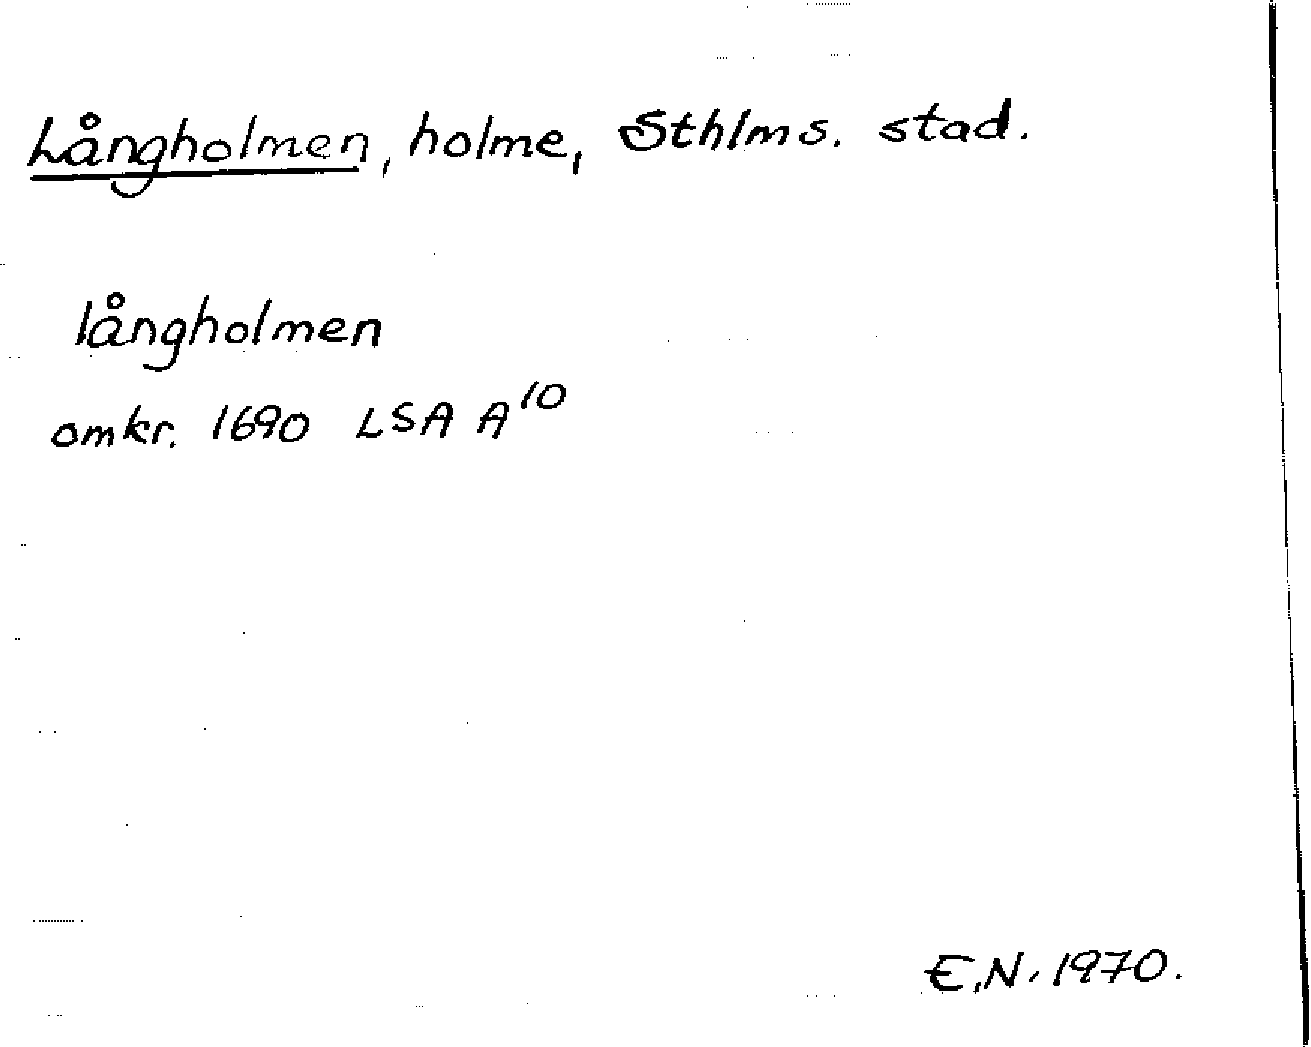 Långholmen, holme, Sthlms. stad.
långholmen
omkr. 1690 LSA A10
E.N. 1970.